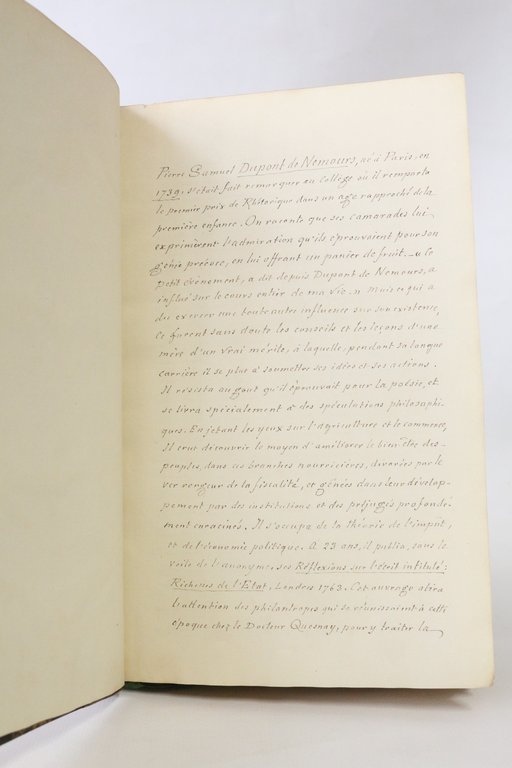 Pierre Samuel Dupont de Nemours, né à Paris, en
1739, s'était fait remarquer au Collège où il remporta
le premier prix de Rhétorique dans un age rapproché de la
première enfance. On raconte que ses camarades lui
exprimèrent l'admiration qu'ils éprouvaient pour son
génie précoce, en lui offrant un panier de fruit. — « Ce
petit évènement, a dit depuis Dupont de Nemours, a
influé sur le cours entier de ma vie. » Mais ce qui a
du exercer une toute autre influence sur son existence,
ce furent sans doute les conseils et les leçons d'une
mère d'un vrai mérite, à laquelle, pendant sa longue
carrière il se plut à soumettre ses idées et ses actions.
Il résista au gout qu'il éprouvait pour la poésie, et
se livra spécialement à des spéculations philosophi-
ques. En jetant les yeux sur l'agriculture et le commerce,
Il crut découvrir le moyen d'améliorer le bien être des
peuples, dans ces branches nourricières, dévorées par le
ver rongeur de la fiscalité, et gênées dans leur dévelop-
pement par des institutions et des préjugés profondé-
ment enracinés. Il s'occupa de la théorie de l'impôt,
et de l'économie politique. A 23 ans, il publia, sous le
voile de l'anonyme, ses Réflexions sur l'écrit intitulé:
Richesses de l'Etat, Londres 1763. Cet ouvrage attira
l'attention des philantropes qui se réunissaient à cette
époque chez le Docteur Quesnay, pour y traiter la